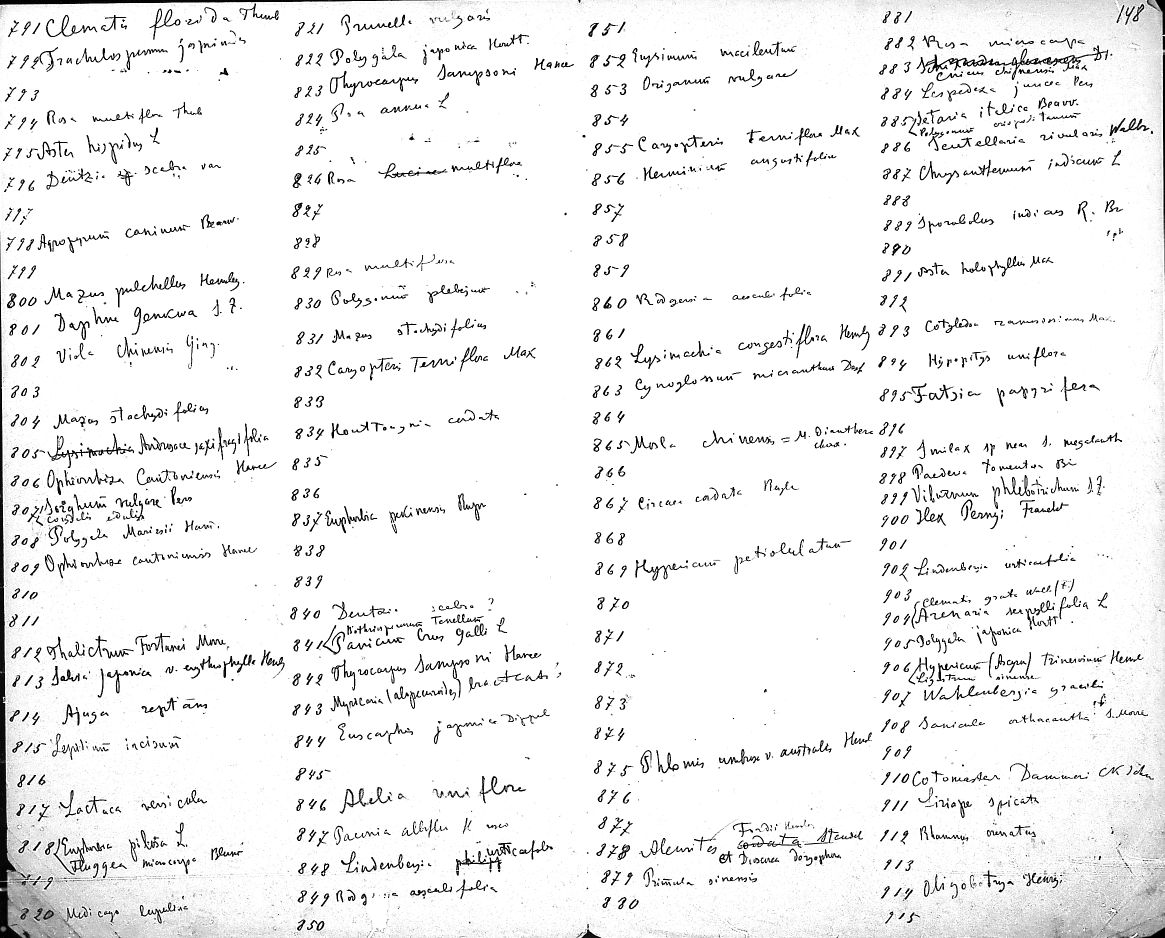 148
791 Clematis florida Thunb
792 Trachelospermum jasminoides
" " "
793
794 Rosa multiflora Thub
795 Aster hispidus L
796 Deutzia scabra var
797
798 Agropyrum caninum Beauv.
799
800 Mazus pulchellus Hemsley.
801 Daphne Genkwa S. Z.
802 Viola chinensis Ging.
803
804 Mazus stachydifolius
805 Lysimachia Androsace saxifragifolia
806 Ophiorrhiza Cantoniensis Hance
807 Sorghum vulgare Pers
Corydalis edulis
808 Polygala Mariesii Hem.
809 Ophiorrhiza cantoniensis Hance
810
811
812 Thalictrum Fortunei Moore,
813 Salvia japonica v. erythrophylla Hemsl
814 Ajuga reptans
815 Lepidium incisum
816
817 Lactuca versicolor
818 Euphrasia pilosa L.
Fluggea microcarpa Blume
819
820 Medicago lupulina
821 Prunella vulgaris
822 Polygala japonica Houtt.
823 Thyrocarpus Sampsoni Hance
824 Poa annua L
825
826 Rosa multiflora
827
828
829 Rosa multiflora
830 Polygonum plebejum
831 Mazus stachydifolius
832 Caryopteris Terniflora Max
833
834 Houttouynia cordata
835
836
837 Euphorbia pekinensis Rupr
838
839
840 Deutzia scabra ?
841 Panicum Crus Galli L
842 Thyrocarpus Sampsoni Hance
843 Myricaria (alopecuroides) bracteata ?
844 Euscaphis japonica Dippel
845
846 Abelia uniflora
847 Paeonia albiflora
848 Lindenbergia philipp urticaefolia
849 Rodgersia aesculifolia
850
851
852 Erysimum macilentum
853 Origanum vulgare
854
855 Caryopteris terniflora Max
856 Herminium angustifolium
857
858
859
860 Rodgersia aesculifolia
861
862 Lysimachia congestiflora Hemsly
863 Cynoglossum micranthum Desf
864
865 Mosla chinensis = M. Dianthera
866
867 Circaea cordata Royle
868
869 Hypericum petiolulatum
870
871
872
873
874
875 Phlomis umbrosa v. australis Hemsl
876
877
Fordii Hemsley
878 Aleurites cordata Steudel
et Discorea doryophora
879 Primula sinensis
880
881
882 Rosa microcarpa
883
Cnicus chinensis Max
884 Lespedeza juncea Pers
885 Setaria italica Beauv.
886 Scutellaria rivularis Wallr.
887 Chrysanthemum indicum L
888
889 Sporobolus indicus R. Br
890
891 Aster holophyllus Max
892
893 Cotyledon ramosissimus Max.
894 Hypopitys uniflora
895 Fatsia papyrifera
896
897 Smilax sp near S. megalantha
898 Paederia tomentosa Bl
899 Viburnum phlebotrichum S.Z.
900 Ilex Pernyi Franchet
901
902 Lindenbergia urticaefolia
903
Clematis grata Wall (?)
904 Arenaria serpyllifolia L
905 Polygala japonica Houtt
906 Hypericum (Ascyron) trinervium Hemsl
Ligustrum sinense
907 Wahlenbergia gracilis
908 Sanicula orthacantha S. Moore
909
910 Cotoneaster Dammeri CK Schn
911 Liriope spicata
912 Rhamnus crenatus
913
914 Oligobotrya Henryi
915